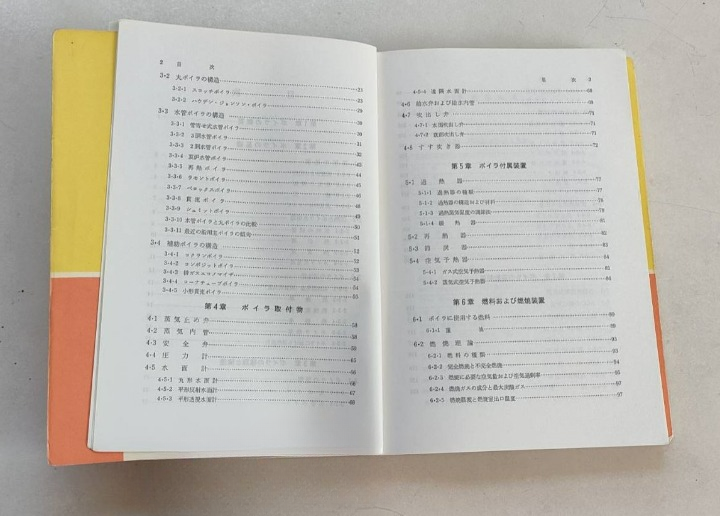 2 目 次
3・2 丸ボイラの構造 21
3-2-1 スコッチボイラ 23
3-2-2 ハウデン・ジョンソン・ボイラ 29
3・3 水管ボイラの構造 29
3-3-1 曹寄セ式水管ボイラ
3-3-2 3胴水管ボイラ
3-3-3 2胴水管ボイラ
3-3-5 再熱ボイラ
3-3-6 ラモントボイラ
3-3-7 ベロックスボイラ
3-3-8 貫流ボイラ
3-3-9 シュミットボイラ
3-3-10 水管ボイラと丸ボイラの比較 50
3-3-11 最近の舶用主ボイラの傾向 51
3・4 補助ボイラの構造 52
3-4-1 コクランボイラ
3-4-2 コンポジットボイラ
3-4-3 排ガスエコノマイザ
3-4-5 小形貫流ボイラ 55
第4章 ボイラ取付物
4・1 蒸気止め弁 58
4・2 蒸気内管 58
4・3 安全弁 59
4・4 圧力計 65
4・5 水面計 66
4-5-1 丸形水面計 66
4-5-2 平形反射水面計 67
4-5-3 平形透視水面計 68
目 次 3
4-5-4 遠隔水面計 68
4・6 給水弁および給水内管
4・7 吹出し弁 71
4-7-1 水面吹出し弁 71
4-7-2 底部吹出し弁 71
4・8 すす吹き器 73
第5章 ボイラ付属装置
5・1 過熱器 77
5-1-1 過熱器の種類 77
5-1-2 過熱器の構造および材料 78
5-1-3 過熱蒸気温度の調節法 79
5-1-4 緩熱器 81
5・2 再熱器
5・3 節炭器
5・4 空気予熱器 84
5-4-1 ガス式空気予熱器 84
5-4-2 蒸気式空気予熱器 84
第6章 燃料および燃焼装置
6・1 ボイラに使用する燃料 89
6-1-1 重油 89
6・2 燃焼理論 93
6-2-1 燃料の種類 93
6-2-2 完全燃焼と不完全燃焼 94
6-2-3 燃焼に必要な空気量および空気過剰率
6-2-4 燃焼ガスの成分と最大炭酸ガス
6-2-5 燃焼温度と燃焼室出口温度 97